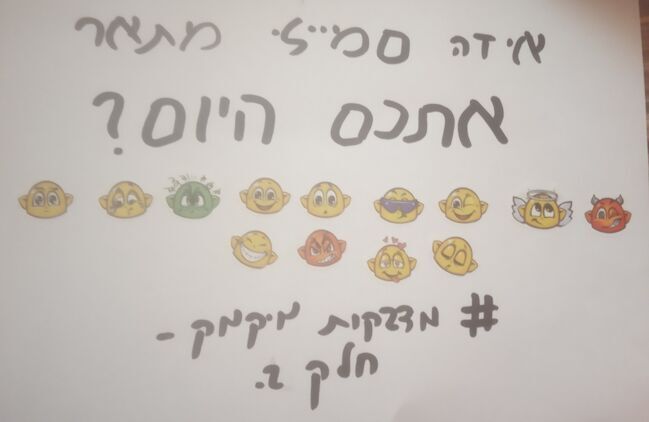 איזה סמיילי מתאר
אתכם היום?
# מדבקות מיקמק -
חלק 2.